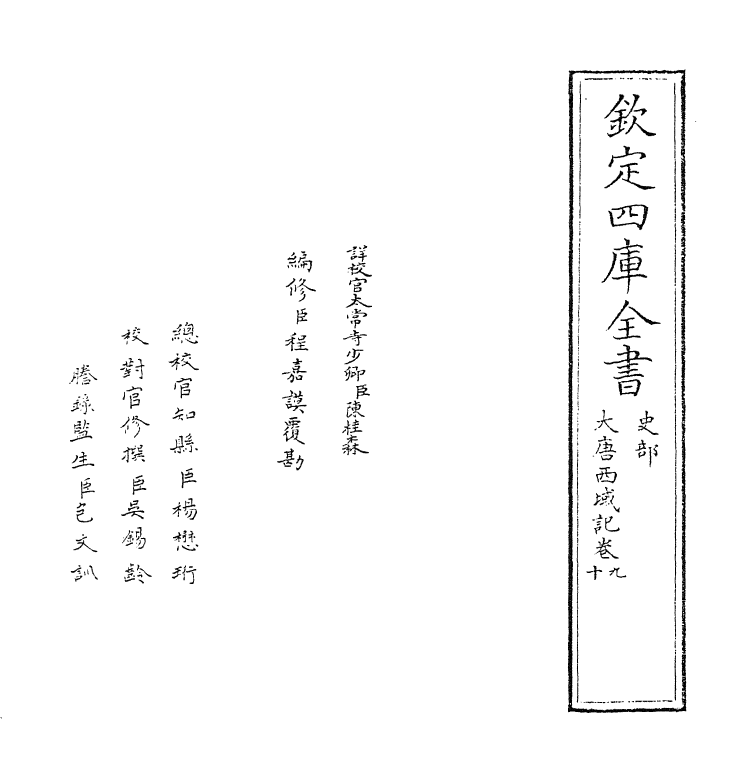 欽定四庫全書
史部
大唐西域記卷九十
詳校官太常寺少卿臣陳桂森
編修臣程嘉謨覆勘
總校官知縣臣楊懋珩
校對官修撰臣吳錫齡
謄錄監生臣包文訓